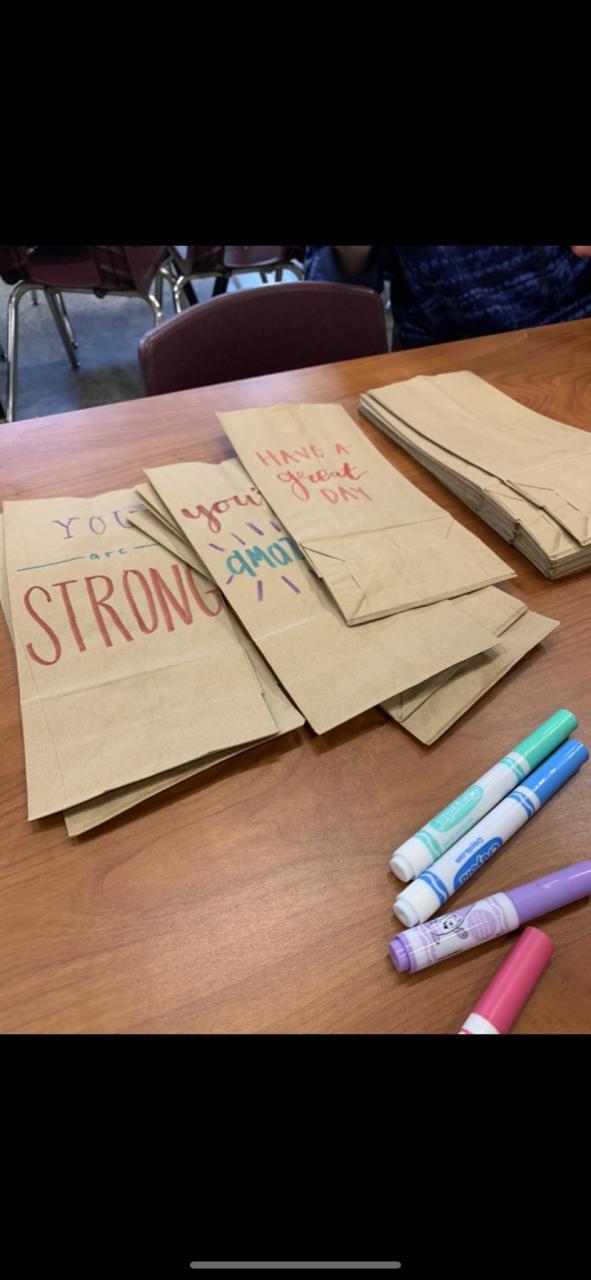 YOU
are
STRONG
you'
amaz
HAVE A
great
DAY
Crayola
Crayola
Crayola.com